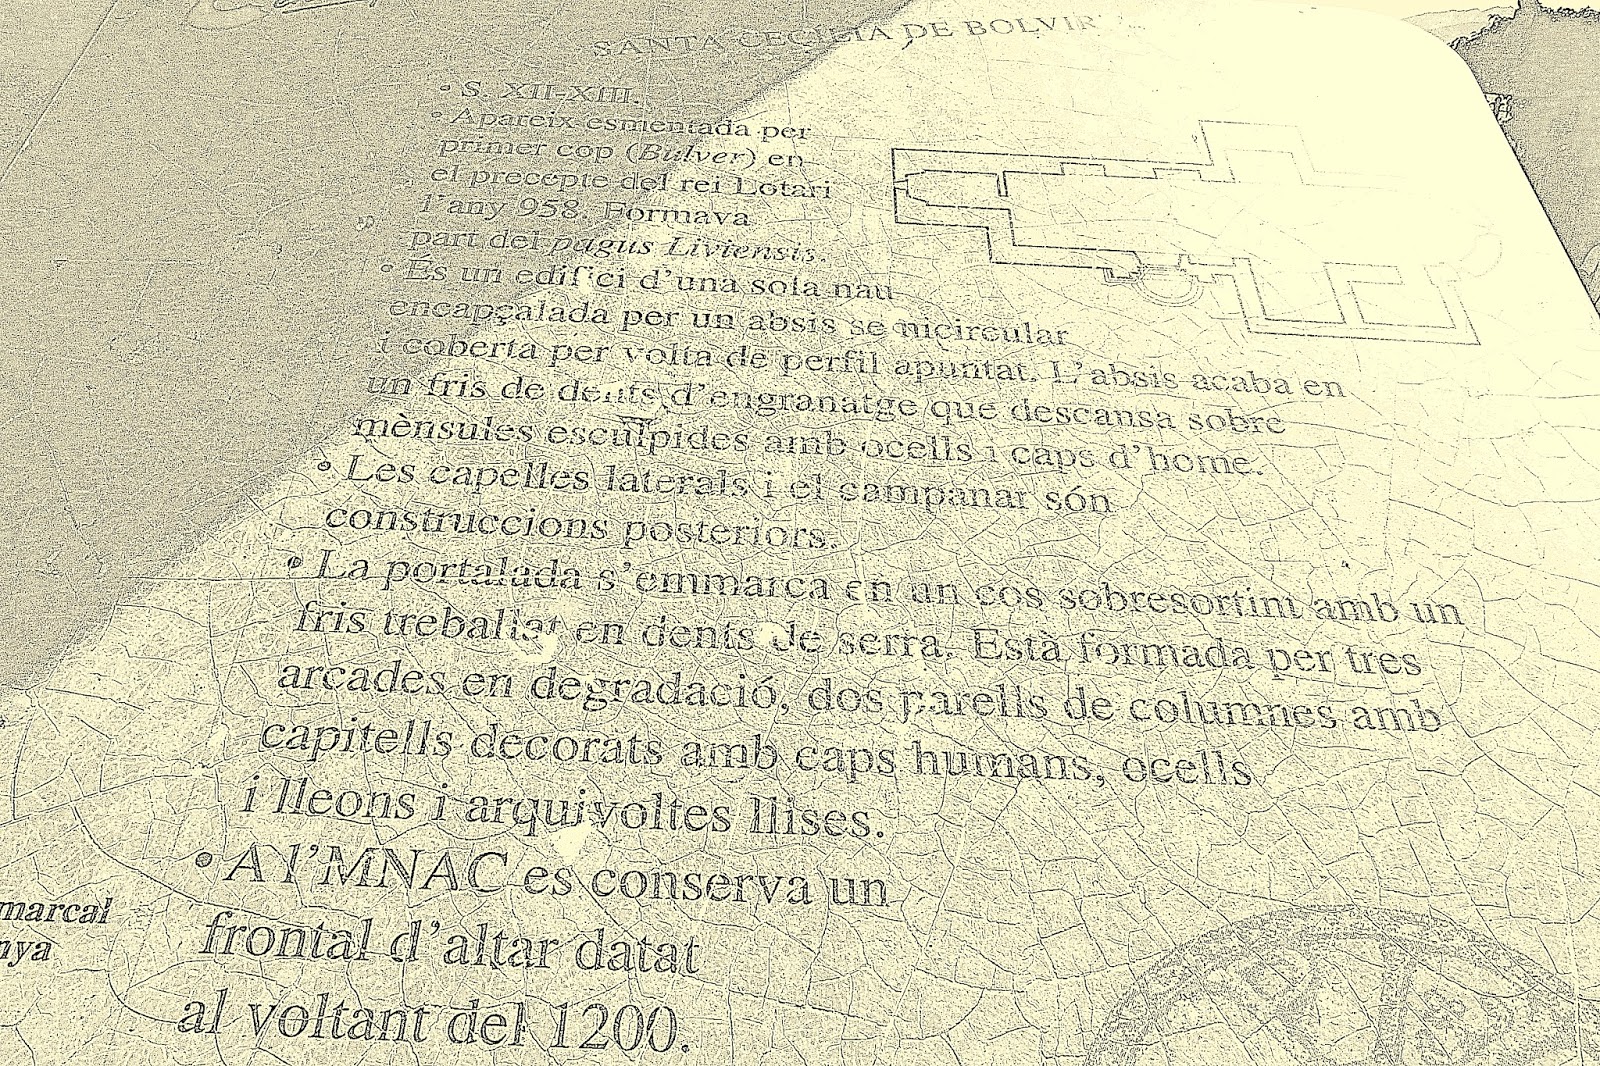 SANTA CECILIA DE BOLVIR
• S. XII-XIII.
• Apareix esmentada per
primer cop (Bulver) en
el precepte del rei Lotari
l'any 958. Formava
part del pagus Liviensis.
• És un edifici d'una sola nau
encapçalada per un absis semicircular
i coberta per volta de perfil apuntat. L'absis acaba en
un fris de dents d'engranatge que descansa sobre
mènsules esculpides amb ocells i caps d'home.
• Les capelles laterals i el campanar són
construccions posteriors.
• La portalada s'emmarca en un cos sobresortint amb un
fris treballat en dents de serra. Està formada per tres
arcades en degradació, dos parells de columnes amb
capitells decorats amb caps humans, ocells
i lleons i arquivoltes llises.
• A l'MNAC es conserva un
frontal d'altar datat
al voltant del 1200.
marcal
nya